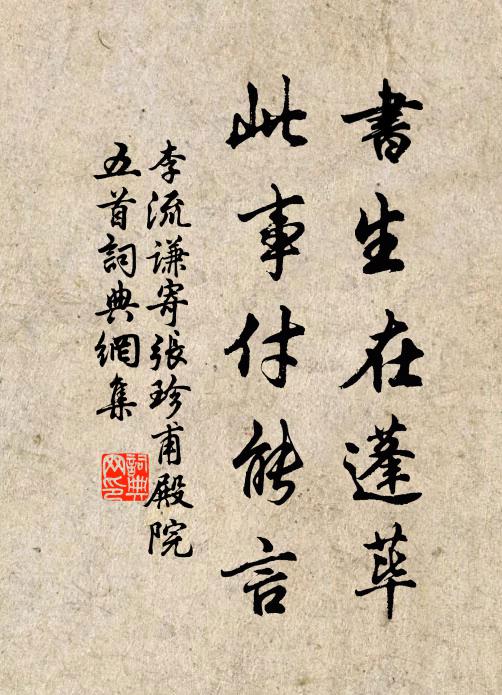 書生在蓬蓽
此事付能言
李流謙寄張珍甫殿院
五首詞典網集
詞典
网印